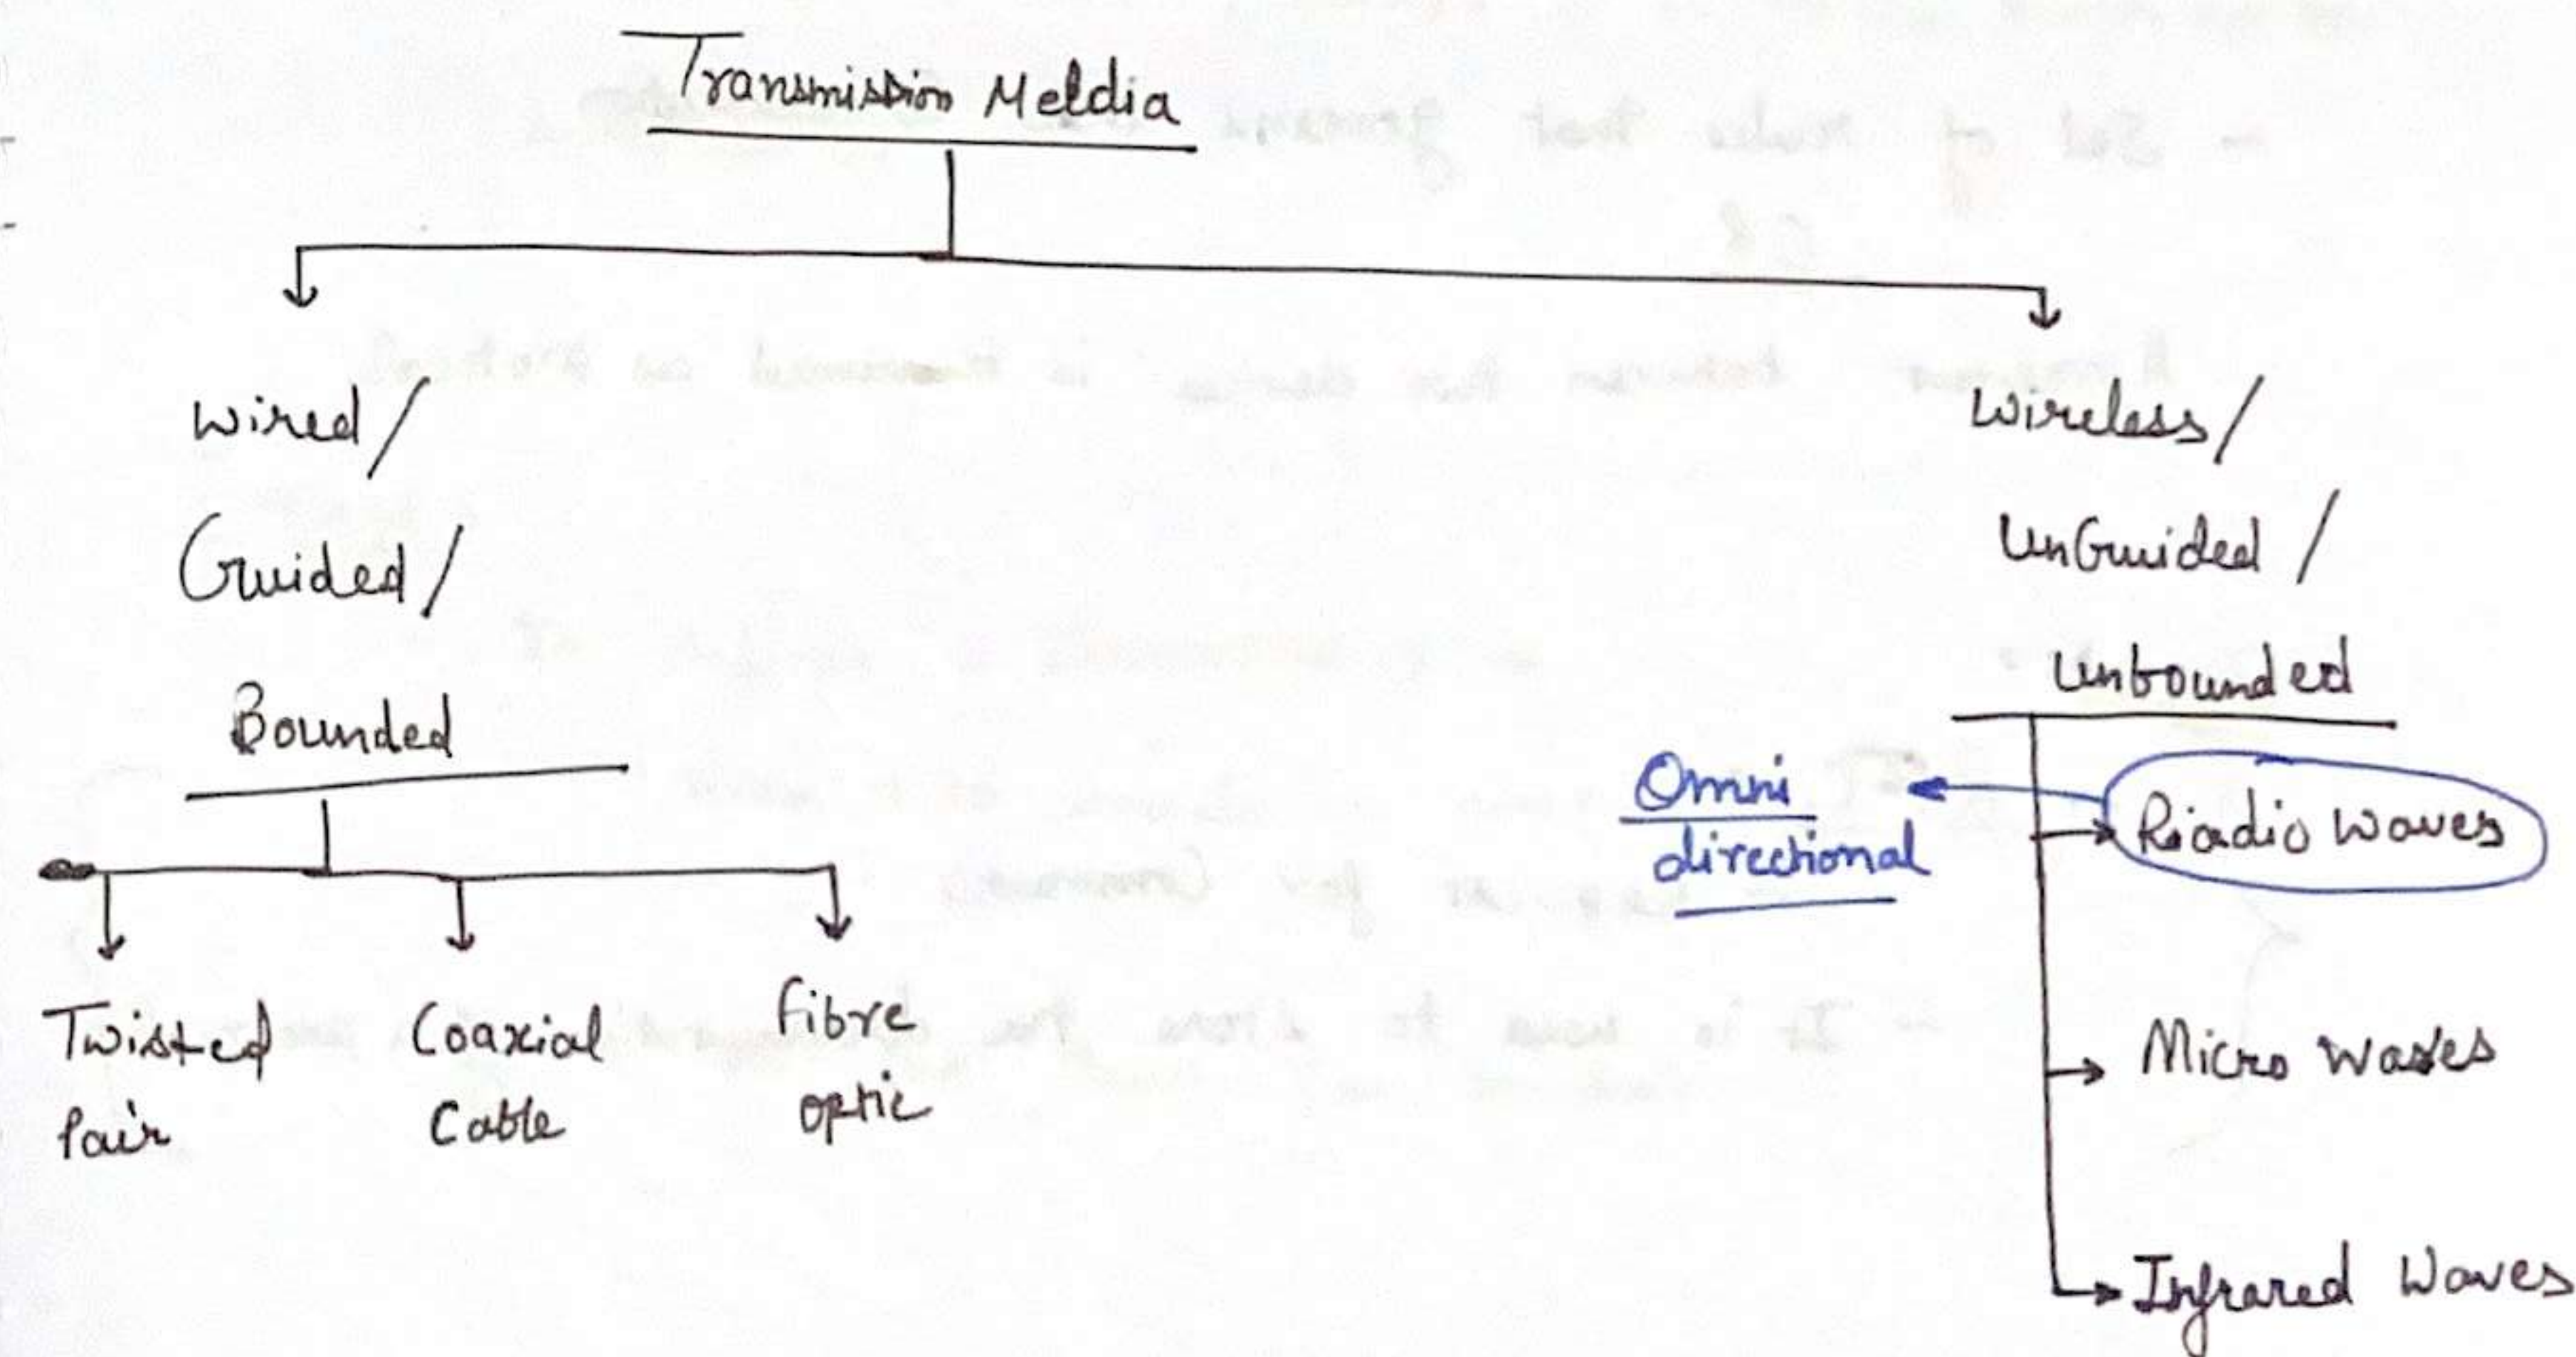 Transmission Meldia
Wired/
Guided/
Bounded
Twisted
Pair
Coaxial
Cable
fibre
optic
Wireless/
UnGuided /
Unbounded
Omni
directional
Riadio Waves
Micro Waves
Infrared Waves